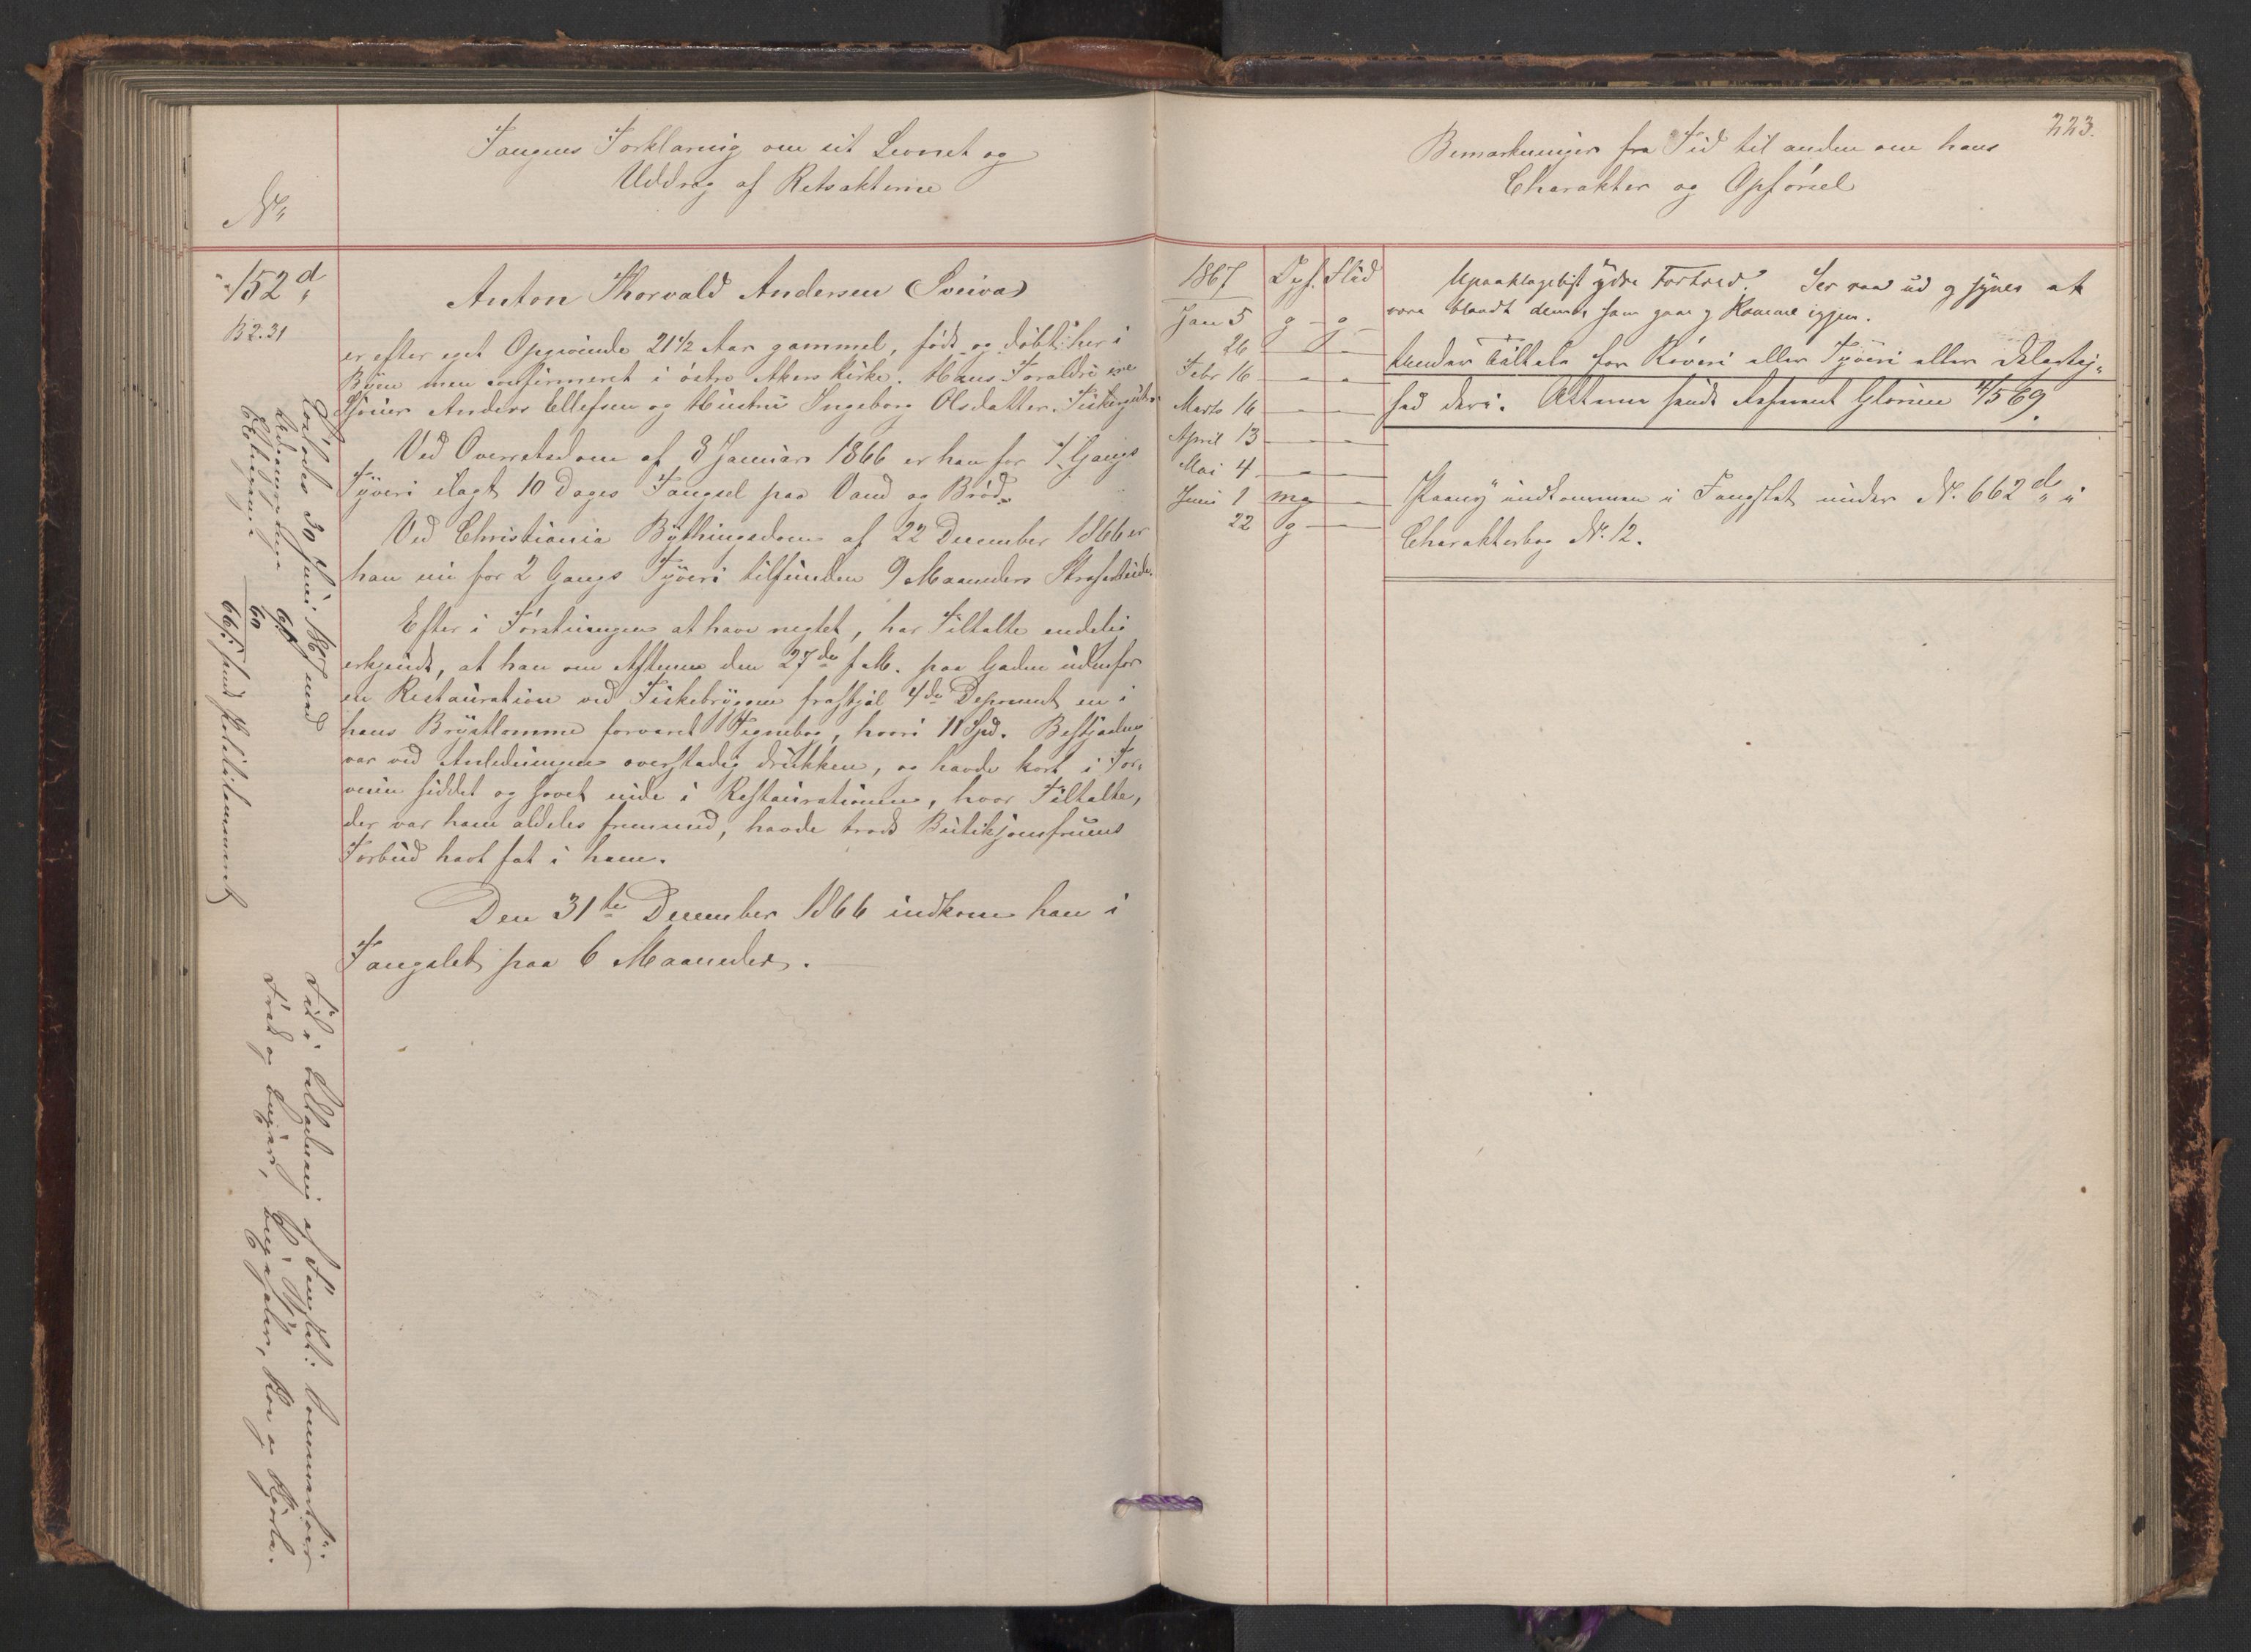 No
Fangens Forklaring om sit Levnet og
Uddrag af Retsakterne
152 d
B 2.31
Anton Thorvald Andersen (Sveiva)
er efter eget Opgivende 21 1/2 Aar gammel, født og døbt her i
Byen men confirmeret i østre Akers Kirke. Hans Forældre ere
Anders Ellefsen og Hustru Ingeborg Olsdatter.
Ved Overretsdom af 8 Januar 1866 er han for 1. Gangs
Tyveri ilagt 10 Dages Fængsel paa Vand og Brød.
Ved Christiania Bythingsdom af 22 December 1866 er
han nu for 2 Gangs Tyveri tilfunden 9 Maaneders Strafarbeide.
Efter i Førstningen at have negtet, har Tiltalte endelig
erkjendt, at han om Aftenen den 27de f.M. paa Gaden udenfor
en Restauration ved Fiskebryggen frastjal 4de Deponent en i
hans Brystlomme forvaret Tegnebog, hvori 11 Spd. Bestjaalne
var ved Anledningen overstadig drukken, og havde kort i For-
veien siddet og sovet inde i Restaurationen, hvor Tiltalte,
der var ham aldeles fremmed, havde trods Butikjomfruens
Forbud havt fat i ham.
Den 31te December 1866 indkom han i
Fængslet paa 6 Maaneder.
Løslodes 30 Juni
60
sendt Politikammeret
Tid i Beklædning af Fængslet:
og Skjorte.
223.
Bemærkninger fra Tid til anden om hans
Charakter og Opførsel
1867 Opf. Flid
Jan 5 g - g
26 - -
Febr 16 - -
Marts 16 - -
April 13 - -
Mai 4 - -
Juni 1 mg -
22 g -
Upaaklageligt ydre Forhold. Ser raa ud og synes at
være blandt dem, som gaar og komme igjen.
Under Tiltale for Røveri eller Tyveri eller Delagtig-
hed deri. Atterm sendt Assessor 4/5 69.
Paany indkommen i Fængslet under No. 662 d i
Charakterbog No. 12.